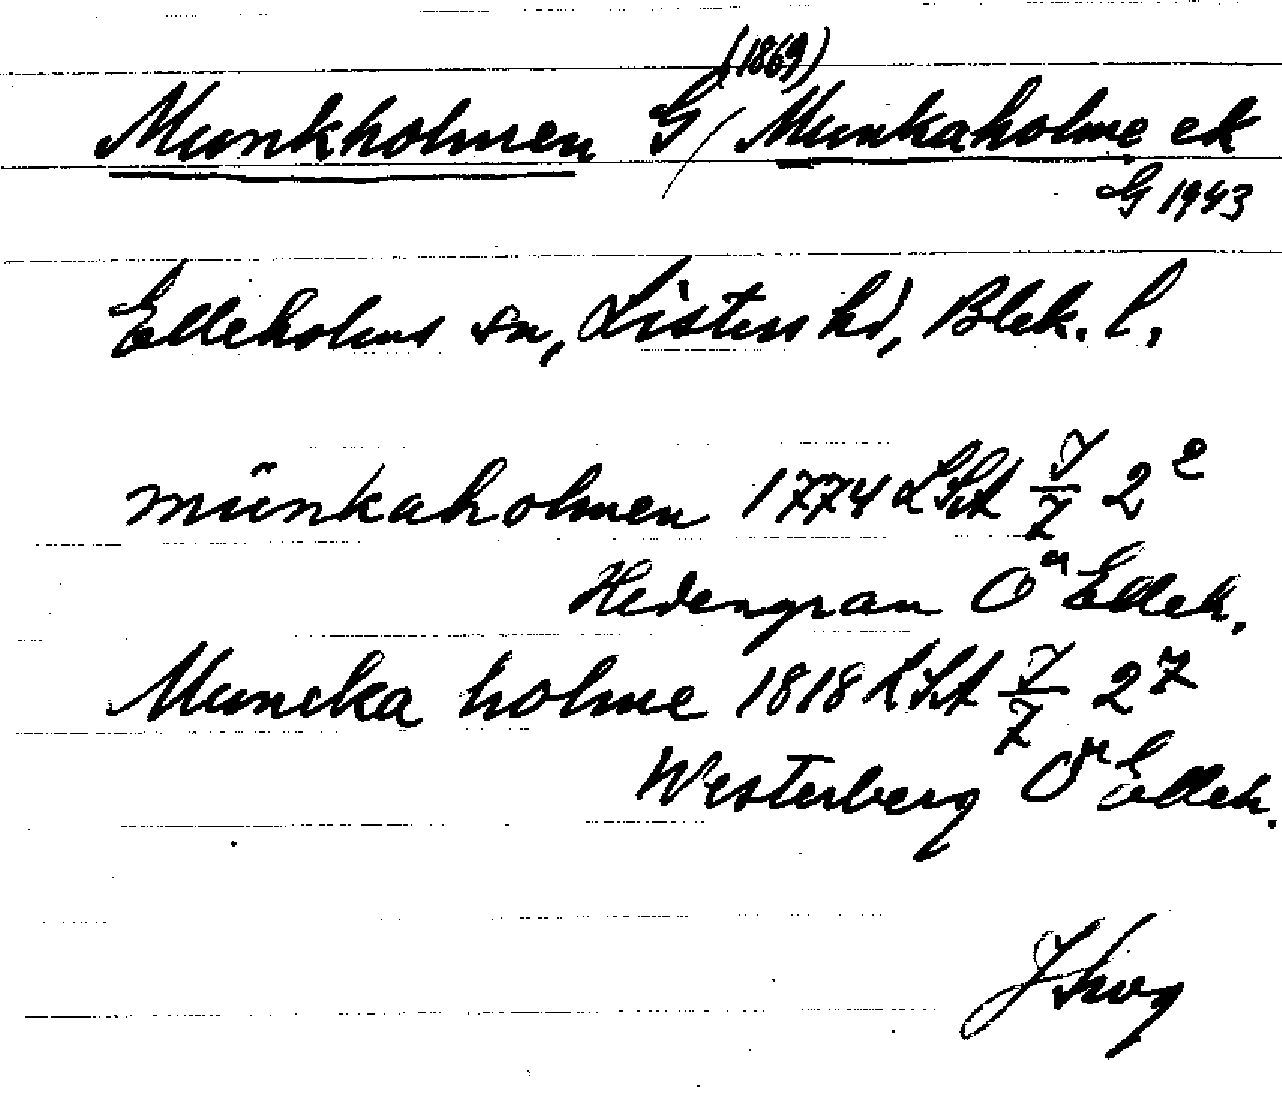 (1869)
Munkholmen G / Munkaholme ek
G 1943
Elleholms sn, Listers hd, Blek. l.
münkaholmen 1774 LSA 7/7 2²
Hedengran Öⁿ Elleh.
Muncka holme 1818 LSA 7/7 2⁷
Westerberg Elleh.